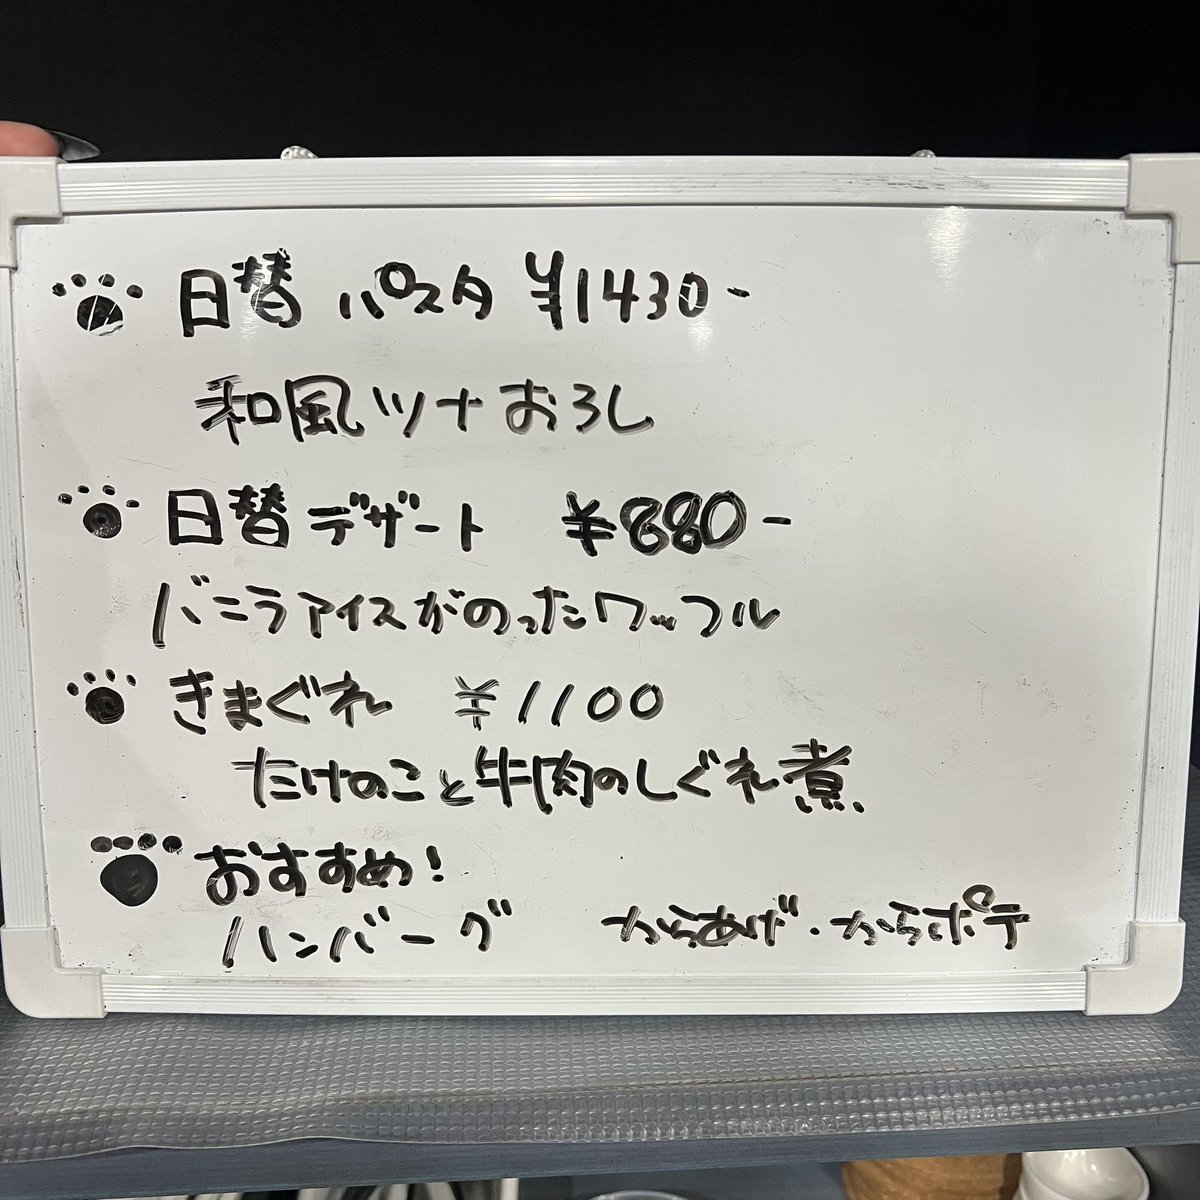 日替 パスタ ¥1430-
和風ツナおろし
日替デザート ¥880-
バニラアイスがのったワッフル
きまぐれ ¥1100
たけのこと牛肉のしぐれ煮
おすすめ!
ハンバーグ からあげ・からポテ